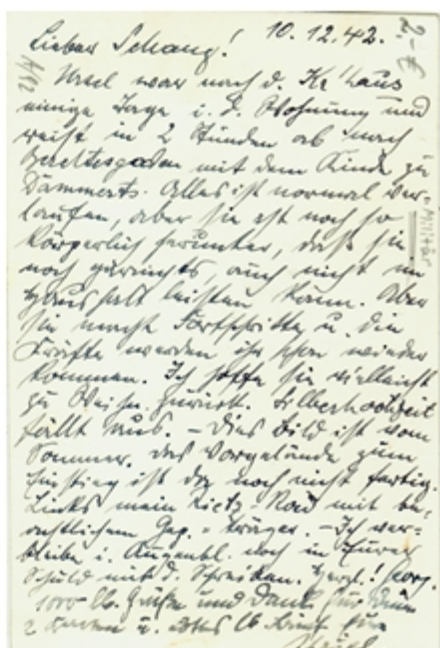 10.12.42.
2.- €
Lieber Schang!
14/12
Ursel war nach d. Kr'haus
einige Tage i. d. Wohnung und
reist in 2 Stunden ab nach
Berchtesgaden mit dem Kinde zu
Dämmerts. Alles ist normal ver-
laufen, aber sie ist noch so
Militär
körperlich herunter, daß sie
noch garnichts, auch nicht im
Haushalt leisten kann. Aber
sie macht Fortschritte u. die
Kräfte werden ihr schon wieder
kommen. Ich hoffe sie vielleicht
zu Weihn. zurück. Silberhochzeit
fällt aus. - Dies Bild ist vom
Sommer. Das Vorgelände zum
Einstieg ist da noch nicht fertig.
Links mein Rad mit
Gep. träger. - Ich ver-
bleibe i. Augenbl. noch in Eurer
Schuld mit d. Schreiben. Herzl.
1000 lb. Grüße und Dank für
2 Karten u. lb Brief